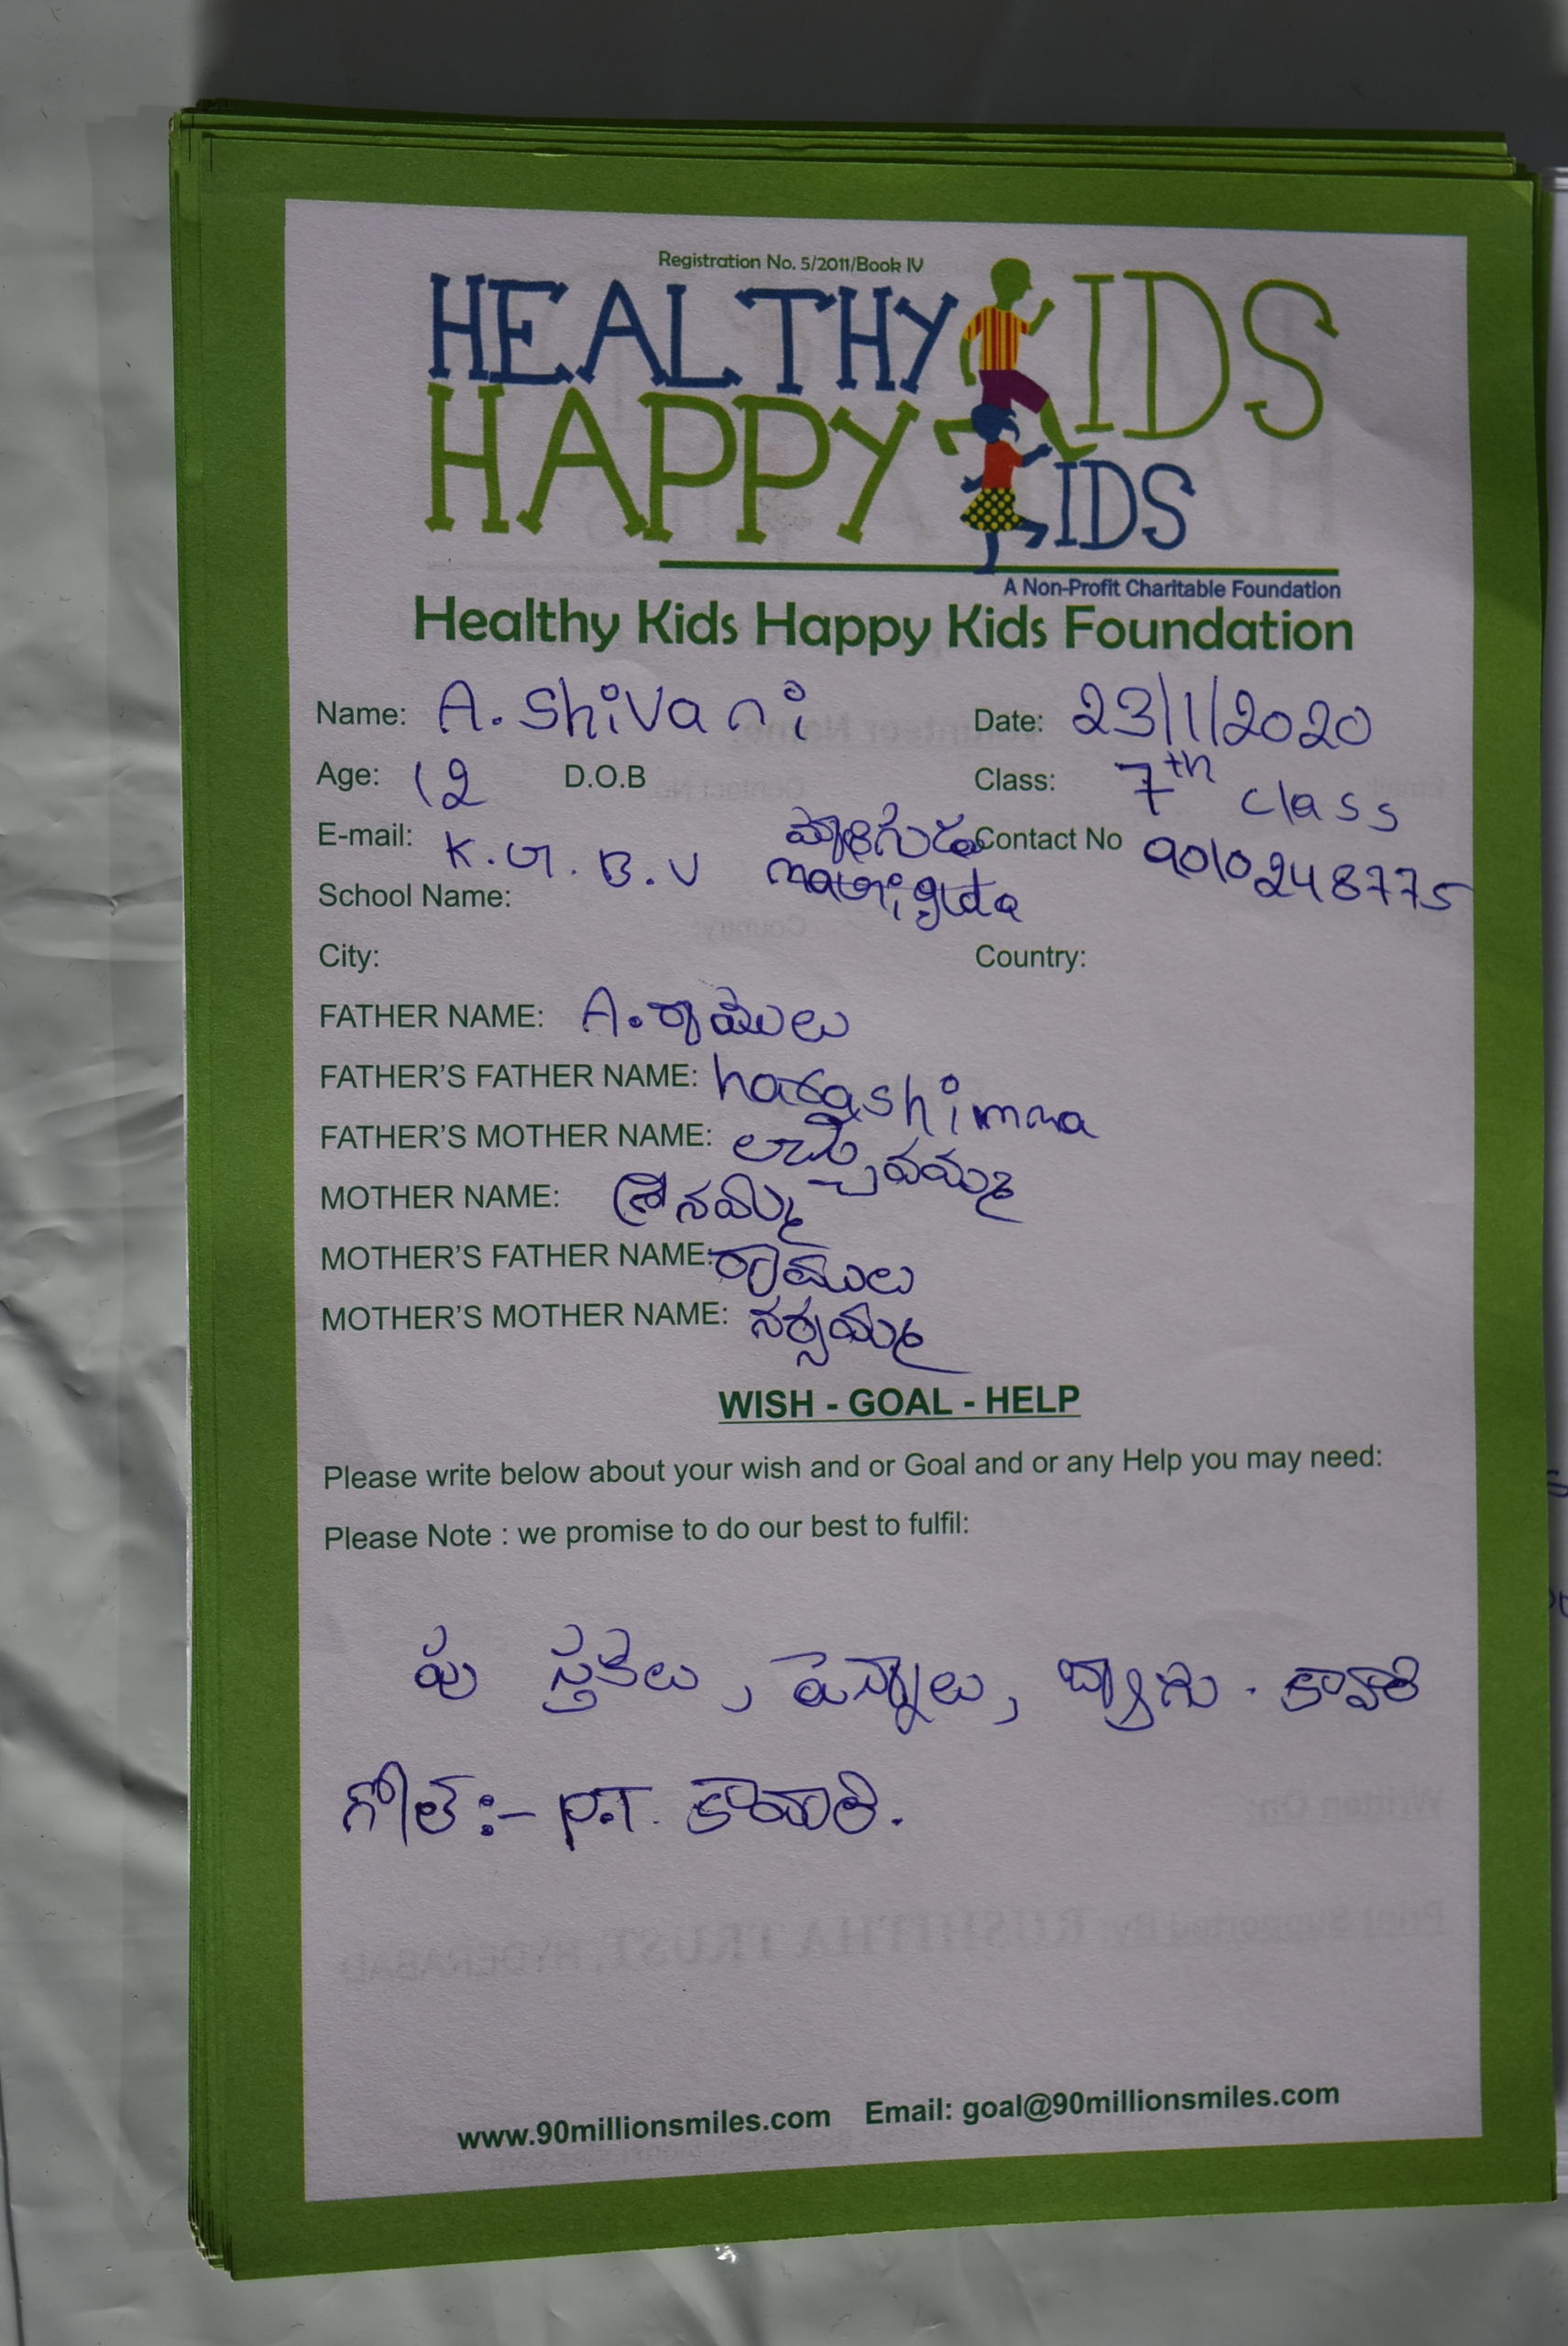 Registration No. 5/2011/Book IV
HEALTHY KIDS
HAPPY KIDS
A Non-Profit Charitable Foundation
Healthy Kids Happy Kids Foundation
Name: A. Shivani Date: 23/1/2020
Age: 12 D.O.B Class: 7th class
E-mail: K.G.B.V Contact No 9010248775
School Name:
City: Country:
FATHER NAME: A. రాములు
FATHER'S FATHER NAME:
FATHER'S MOTHER NAME:
MOTHER NAME:
MOTHER'S FATHER NAME: రాములు
MOTHER'S MOTHER NAME: నర్సమ్మ
WISH - GOAL - HELP
Please write below about your wish and or Goal and or any Help you may need:
Please Note : we promise to do our best to fulfil:
పు స్తకలు, పెన్నులు, బ్యాగు. కావాలి
గోల్:- P.T. కావాలి.
www.90millionsmiles.com Email: goal@90millionsmiles.com